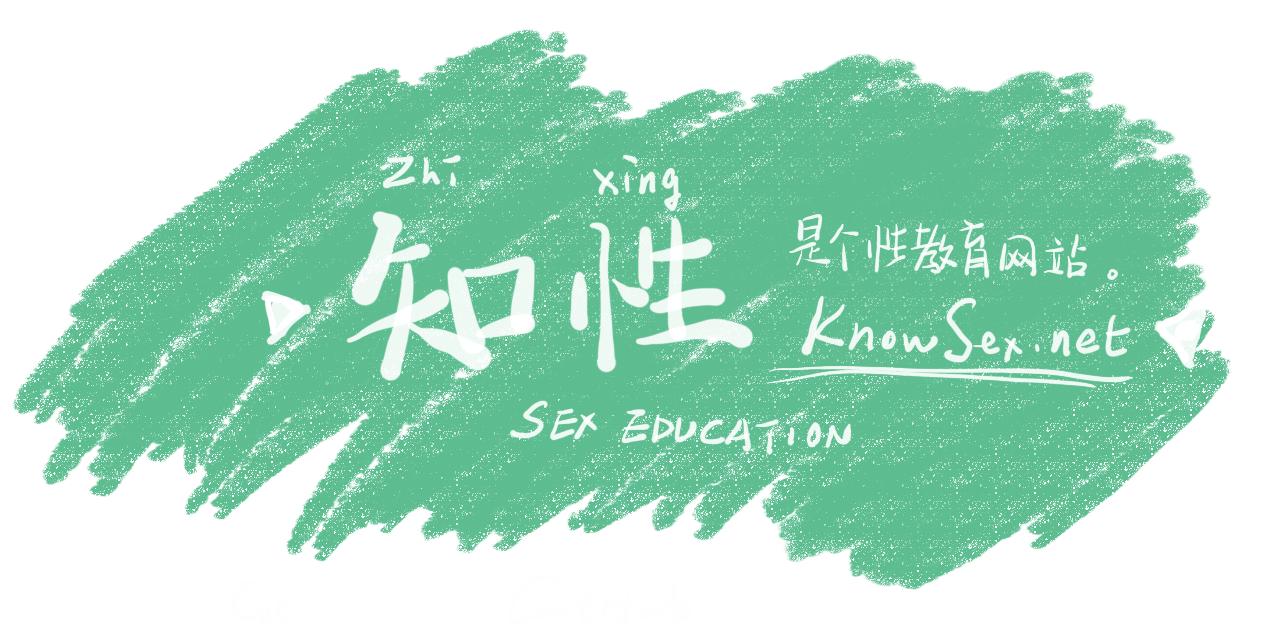 Zhi xing
知性
是个性教育网站。
KnowSex.net
SEX EDUCATION